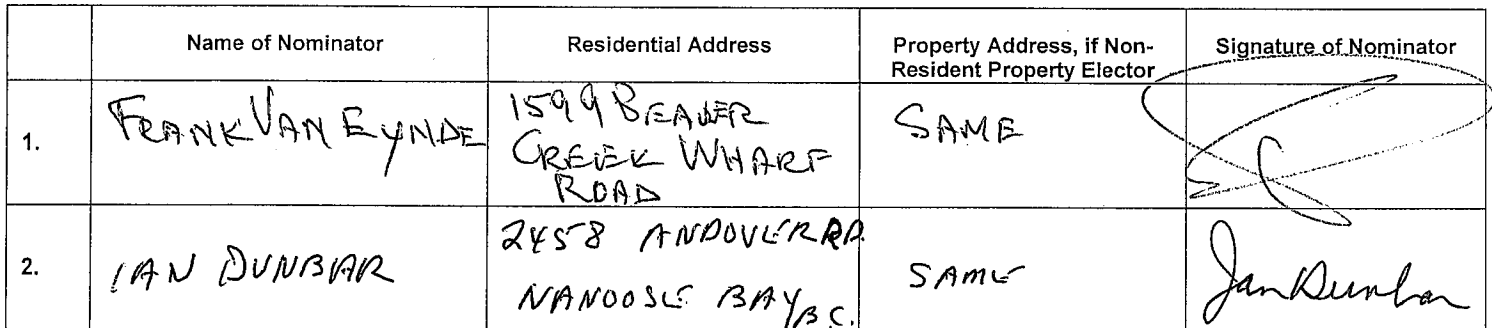 Name of Nominator
Residential Address
Property Address, if Non-
Resident Property Elector
Signature of Nominator
1.
FRANK VAN EYNDE
1599 BEAVER
CREEK WHARF
ROAD
SAME
2.
IAN DUNBAR
2458 ANDOVER RD.
NANOOSE BAY B.C.
SAME
Ian Dunbar